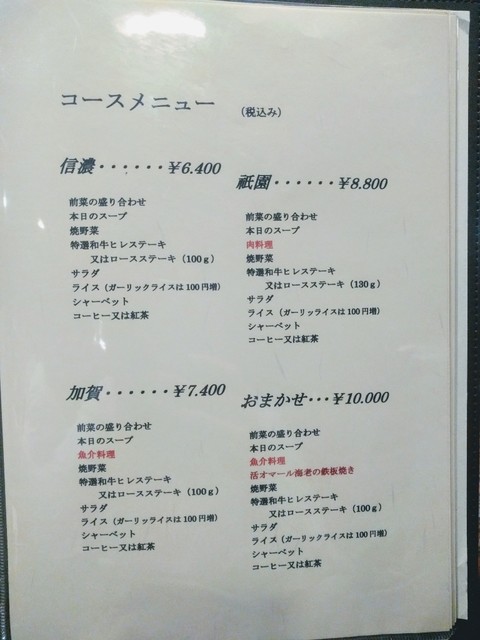 コースメニュー (税込み)
信濃・・・・・・¥6.400
前菜の盛り合わせ
本日のスープ
焼野菜
特選和牛ヒレステーキ
又はロースステーキ（100ｇ）
サラダ
ライス（ガーリックライスは100円増）
シャーベット
コーヒー又は紅茶
祇園・・・・・・¥8.800
前菜の盛り合わせ
本日のスープ
肉料理
焼野菜
特選和牛ヒレステーキ
又はロースステーキ（130ｇ）
サラダ
ライス（ガーリックライスは100円増）
シャーベット
コーヒー又は紅茶
加賀・・・・・・¥7.400
前菜の盛り合わせ
本日のスープ
魚介料理
焼野菜
特選和牛ヒレステーキ
又はロースステーキ（100ｇ）
サラダ
ライス（ガーリックライスは100円増）
シャーベット
コーヒー又は紅茶
おまかせ・・・¥10.000
前菜の盛り合わせ
本日のスープ
魚介料理
活オマール海老の鉄板焼き
焼野菜
特選和牛ヒレステーキ
又はロースステーキ（100ｇ）
サラダ
ライス（ガーリックライスは100円増）
シャーベット
コーヒー又は紅茶